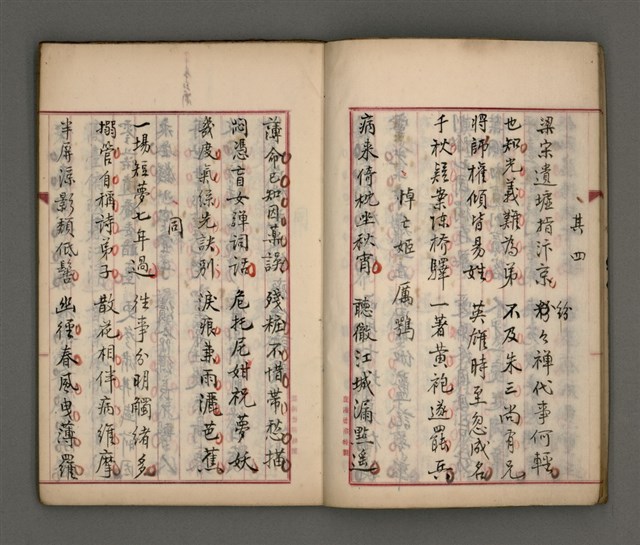 其四
梁宋遺墟指汴京 紛々禪代事何輕
紛
也知光義難為弟 不及朱三尚有兄
將帥權傾皆易姓 英雄時至忽成名
千秋疑案陳橋驛 一著黃袍遂罷兵
悼亡姬 厲鶚
病来倚枕坐秋宵 聽徹江城漏點遥
薄命已知因藥誤 殘粧不惜帶愁描
悶憑盲女彈詞話 危托尼姑祝夢妖
幾度氣絲先訣別 淚痕兼雨灑芭蕉
同
一場短夢七年過 往事分明觸緒多
搦管自稱詩弟子 散花相伴病維摩
半屏涼影頹低髻 幽徑春風曳薄羅